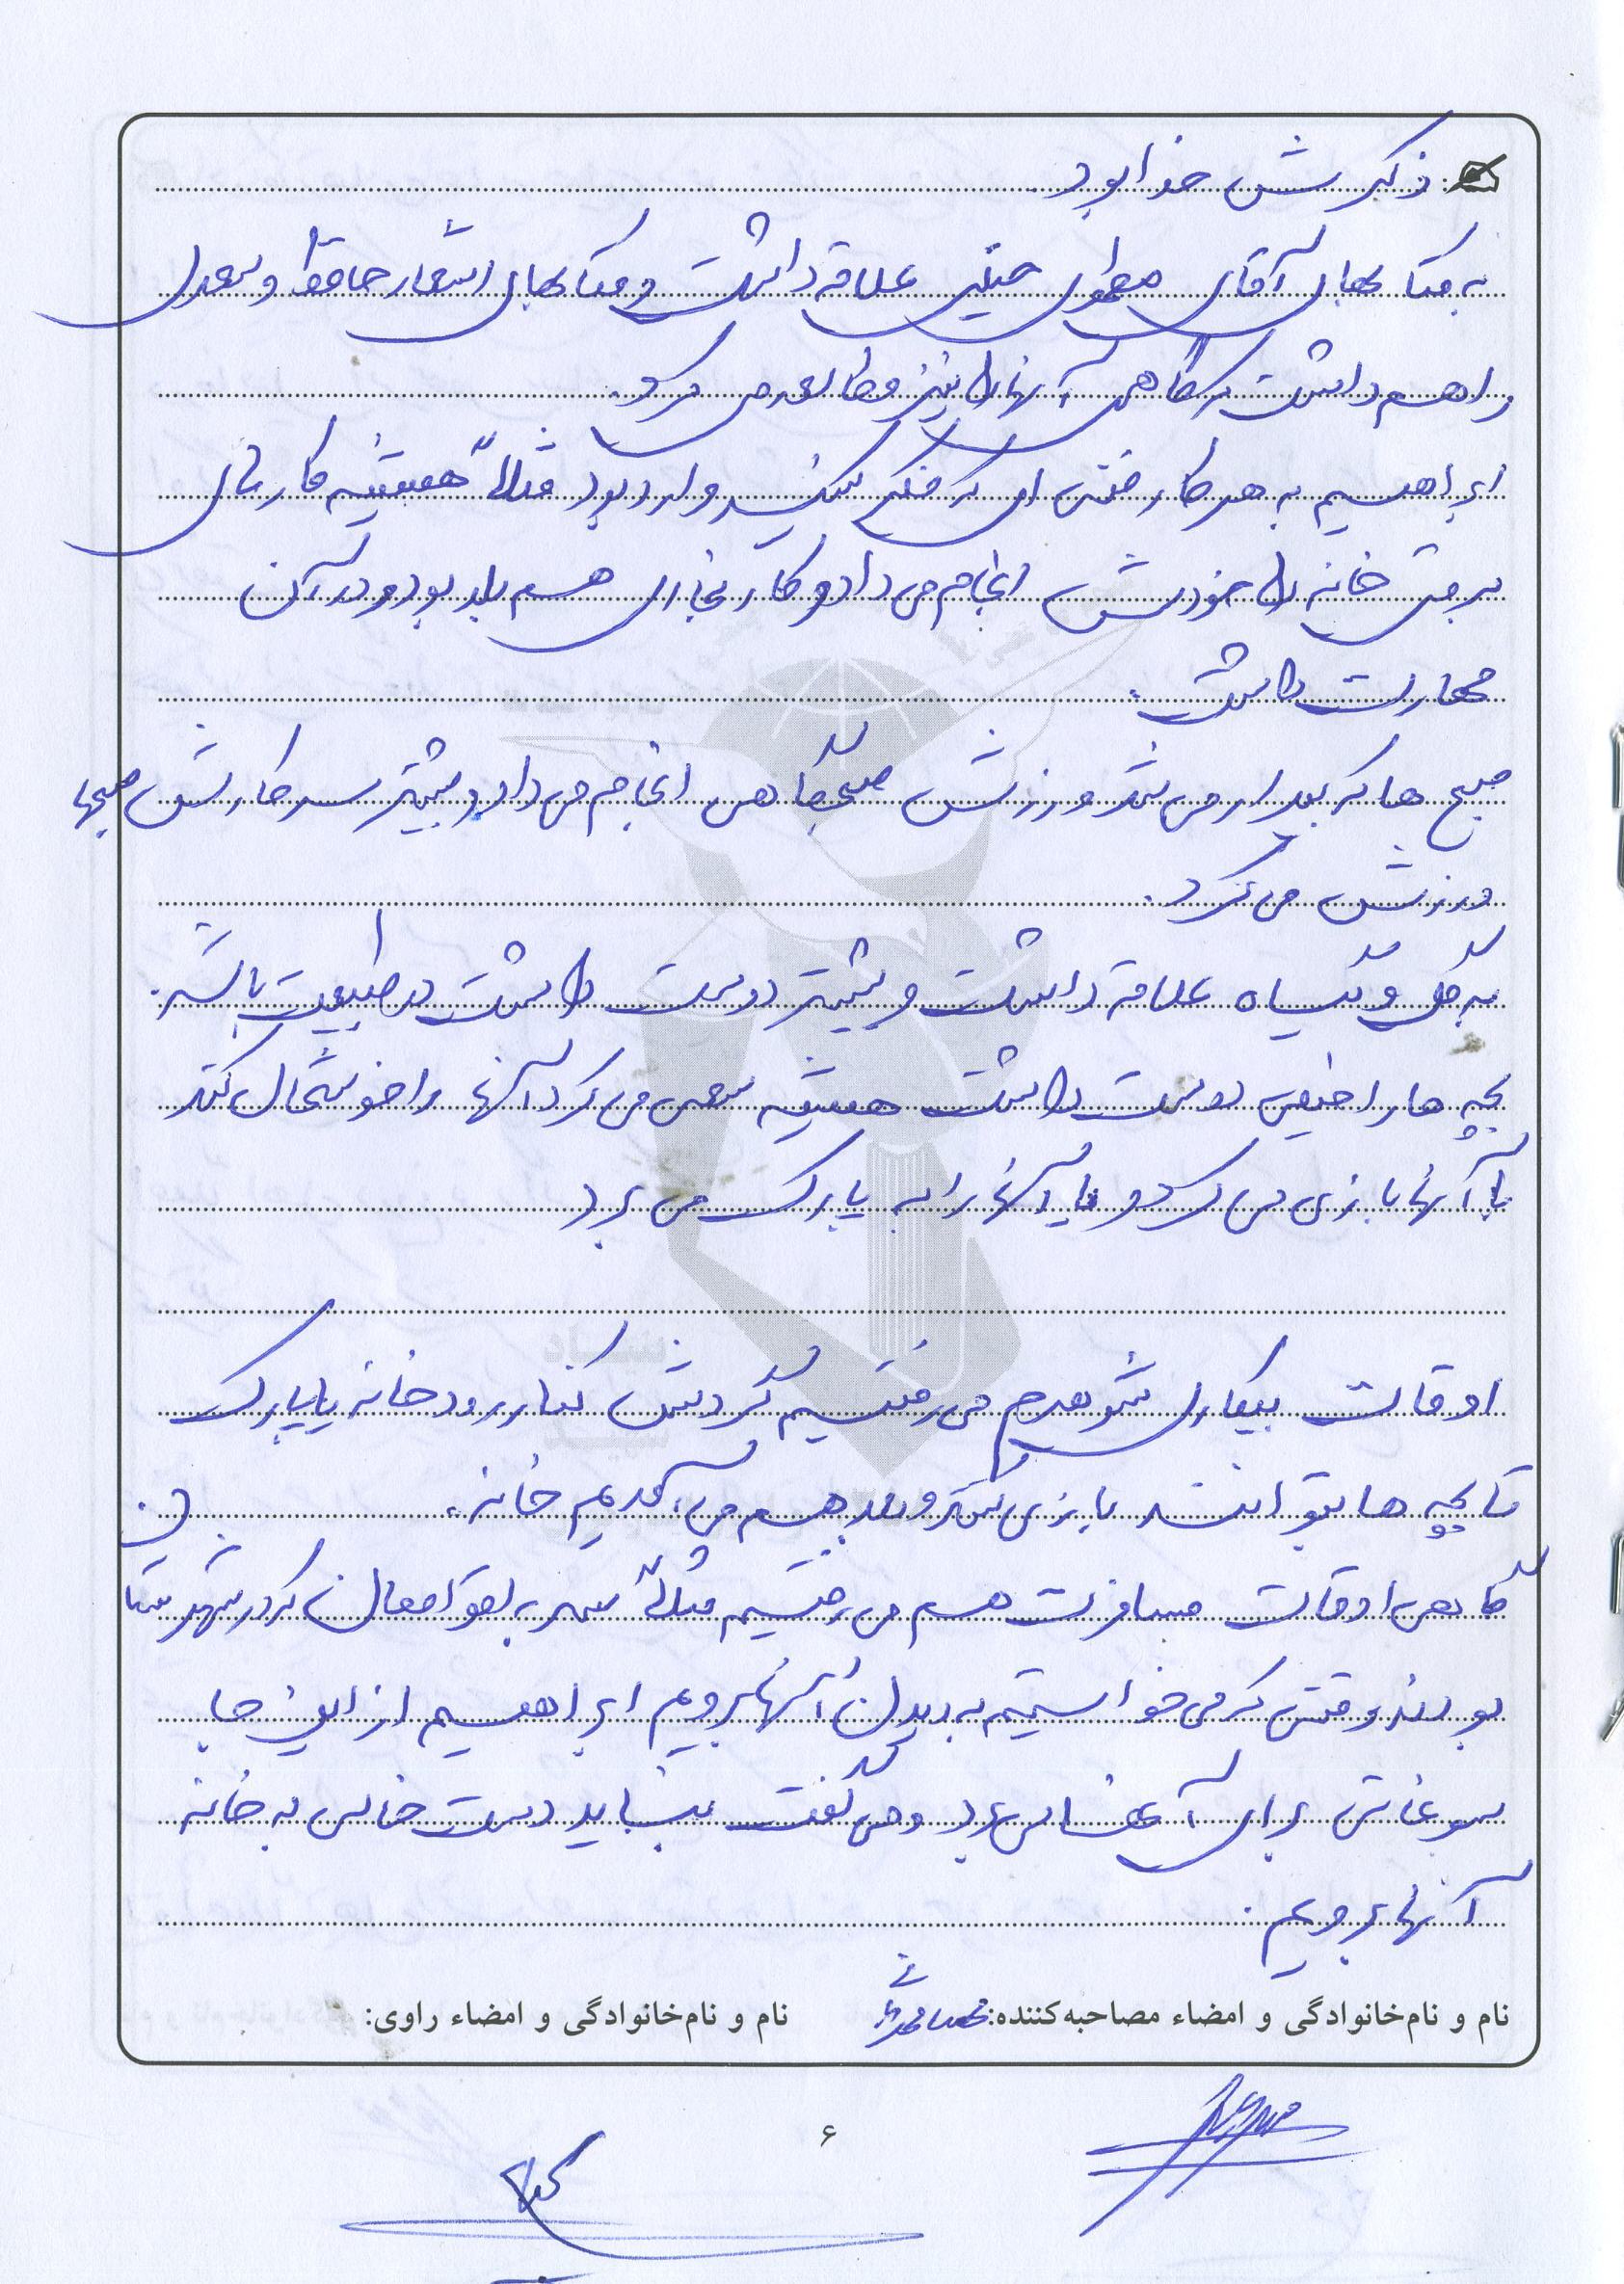 ذکرش خدا بود
به کتابهای آقای مطهری خیلی علاقه داشت و کتابهای اشعار حافظ و سعدی
را هم داشت که گاهی آنها را نیز مطالعه می کرد.
ابراهیم به هر کار فنی ای که فکر کنید وارد بود مثلاً همیشه کارهای
برقی خانه را خودش انجام می داد و کار نجاری هم بلد بود و در آن
مهارت داشت.
صبح ها که بیدار می شد ورزش صبحگاهی انجام می داد و بیشتر سر کارش صبحها
ورزش می کرد.
به گل و گیاه علاقه داشت و بیشتر دوست داشت در طبیعت باشد.
بچه ها را خیلی دوست داشت همیشه سعی می کرد آنها را خوشحال کند
با آنها بازی می کرد و یا آنها را به پارک می برد
اوقات بیکاری شوهرم می رفتیم گردش کنار رودخانه یا پارک
تا بچه ها بتوانند بازی کنند و بعد هم می آمدیم خانه.
گاهی اوقات مسافرت هم می رفتیم مثلاً سر به اقوامان که در شهرستان
بودند وقتی که می خواستیم به دیدن آنها برویم ابراهیم از این جا
سوغاتی برای آنها می برد و می گفت نباید دست خالی به خانه
آنها برویم.
نام و نام‌خانوادگی و امضاء مصاحبه‌کننده:
نام و نام‌خانوادگی و امضاء راوی:
۶